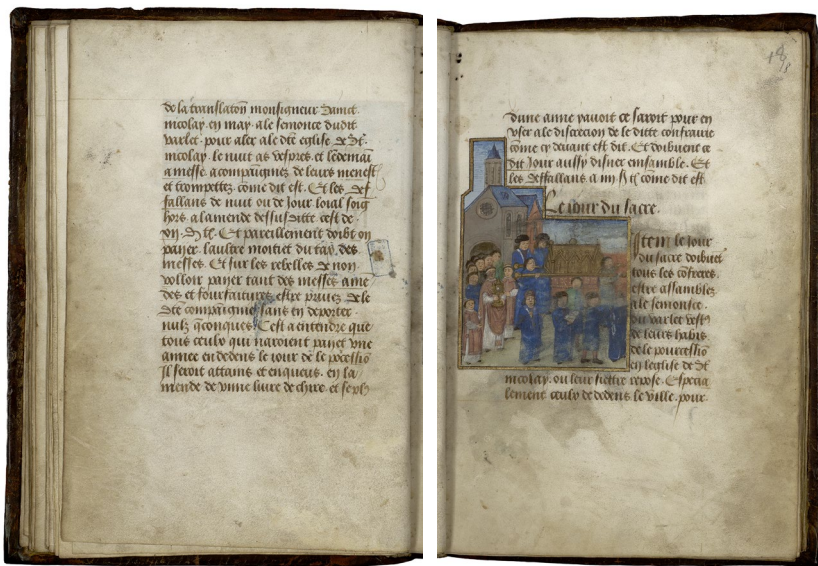 de la translaton monsigneur saint
nicolay. en may. a le semonce dudit
varlet. pour aler a le dte eglise de st.
nicolay. le nuit as vespres. et ledemai
a messe. acompaignez de leurs menest
et trompettez. come dit est. Et les def
fallans de nuit ou de Jour. loial soig
hors. a lamende dessusditte cest de
vij. s tz. Et pareillement doibt on
paijer. laultre moitiet du tax, des
messes. Et sur les rebelles de non
volloir paijer tant des messes ame
des et fourfaitures estre privez de le
dte compaignie sans en deporter
nulz qconques. Cest a entendre que
tous ceulx qui naroient paijet vne
annee endedens le iour de le pocessio
Jl seroit attains et enqueus. en la
mende de vnne livre de chire. et se pl
dune anne paijoit ce saroit pour en
vser a le discrecion de le ditte confrairie
come cy devant est dit. Et doibuent ce
dit Jour aussy disner ensamble. Et
les deffallans a iiij s tz come dit est
Le iour du sacre.
Item le Jour
du sacre doibuet
tous les cofreres.
estre assamblez
a le semonse.
du varlet vest
de leurs habis
de le pourcessio
en leglise de st
nicolay. ou leur fiertre repose. Especia
lement ceulx de dedens le ville. pour